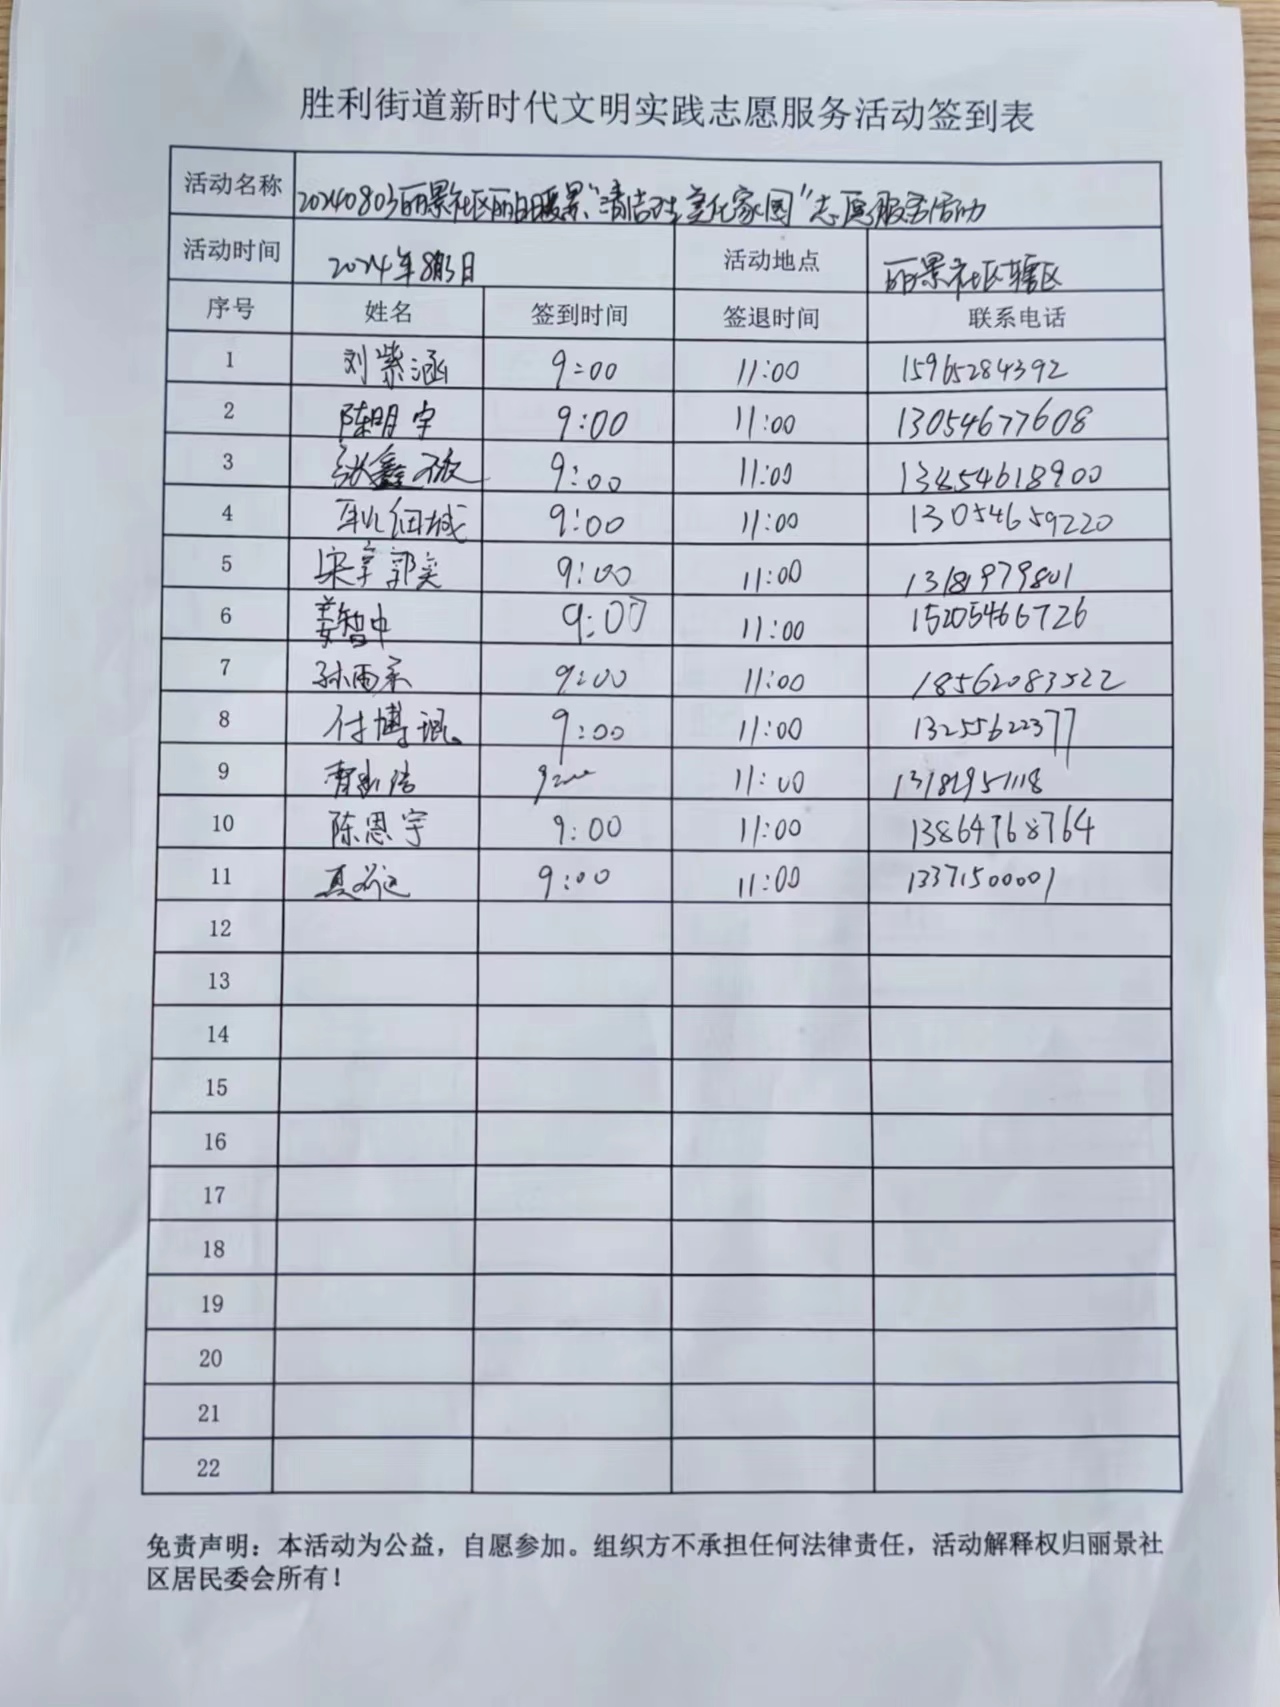 胜利街道新时代文明实践志愿服务活动签到表
活动名称 20240803丽景社区丽日暖景“清洁 家园”志愿服务活动
活动时间 2024年8月3日 活动地点 丽景社区辖区
序号 姓名 签到时间 签退时间 联系电话
1 刘紫涵 9:00 11:00 15965284392
2 陈明宇 9:00 11:00 13054677608
3 张鑫 9:00 11:00 13854618900
4 9:00 11:00 13054659220
5 宋 郭奕 9:00 11:00 13181979801
6 姜智中 9:00 11:00 15205466726
7 孙雨 9:00 11:00 18562083522
8 付博 9:00 11:00 13255622377
9 11:00
10 陈恩宇 9:00 11:00 13864768764
11 9:00 11:00 13371500001
12
13
14
15
16
17
18
19
20
21
22
免责声明：本活动为公益，自愿参加。组织方不承担任何法律责任，活动解释权归丽景社
区居民委会所有！